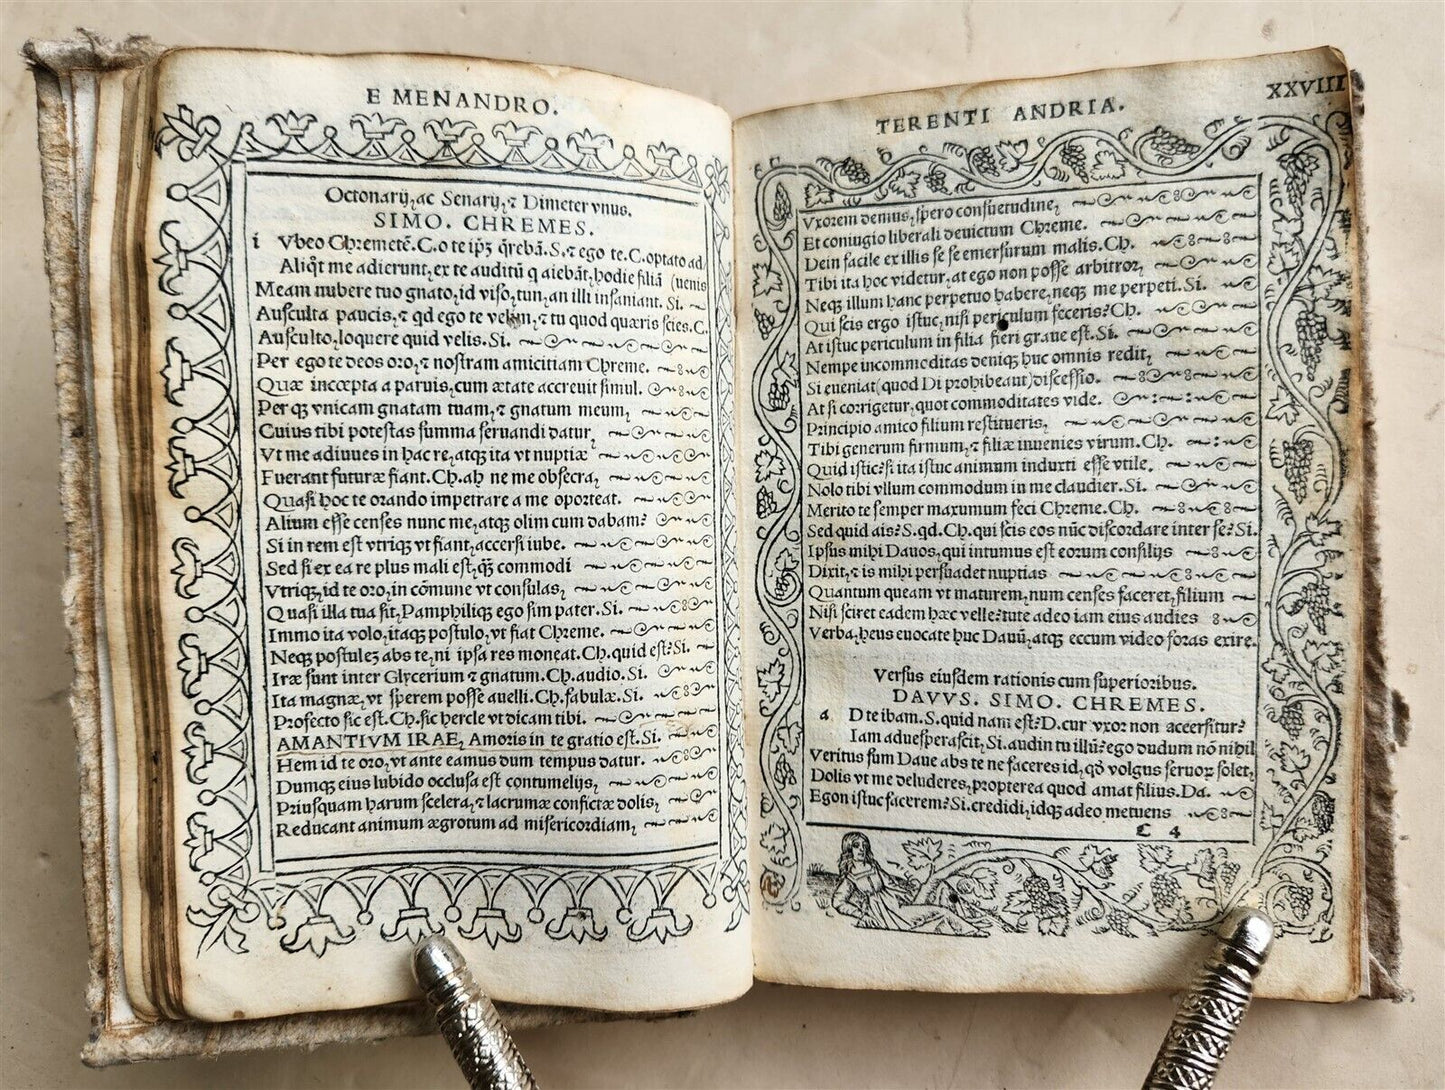 E MENANDRO.
Octonarij, ac Senarij, ⁊ Dimeter vnus.
SIMO. CHREMES.
i Vbeo Chremetē. C. o te ipʒ q̄rebā. S. ⁊ ego te. C. optato ad
Aliq̄t me adierunt, ex te auditū q aiebāt, hodie filiā (uenis
Meam nubere tuo gnato, id viso, tun, an illi insaniant. Si.
Ausculta paucis, ⁊ qd ego te velim, ⁊ tu quod quæris scies. C.
Ausculto, loquere quid velis. Si.
Per ego te deos oro, ⁊ nostram amicitiam Chreme.
Quæ incœpta a paruis, cum ætate accreuit simul.
Per qʒ vnicam gnatam tuam, ⁊ gnatum meum,
Cuius tibi potestas summa seruandi datur,
Vt me adiuues in hac re, atqʒ ita vt nuptiæ
Fuerant futuræ fiant. Ch. ah ne me obsecra,
Quasi hoc te orando impetrare a me oporteat.
Alium esse censes nunc me, atqʒ olim cum dabam?
Si in rem est vtriqʒ vt fiant, accersi iube.
Sed si ex ea re plus mali est, q̄ʒ commodi
Vtriqʒ, id te oro, in cōmune vt consulas,
Quasi illa tua sit, Pamphiliqʒ ego sim pater. Si.
Immo ita volo, itaqʒ postulo, vt fiat Chreme.
Neqʒ postuleʒ abs te, ni ipsa res moneat. Ch. quid est? Si.
Iræ sunt inter Glycerium ⁊ gnatum. Ch. audio. Si.
Ita magnæ, vt sperem posse auelli. Ch. fabulæ. Si.
Profecto sic est. Ch. sic hercle vt dicam tibi.
AMANTIVM IRAE, Amoris in te gratio est. Si.
Hem id te oro, vt ante eamus dum tempus datur.
Dumqʒ eius lubido occlusa est contumelijs,
Priusquam harum scelera, ⁊ lacrumæ confictæ dolis,
Reducant animum ægrotum ad misericordiam,
TERENTI ANDRIA. XXVIII
Vxorem demus, spero consuetudine,
Et coniugio liberali deuictum Chreme.
Dein facile ex illis se se emersurum malis. Ch.
Tibi ita hoc videtur, at ego non posse arbitror,
Neqʒ illum hanc perpetuo habere, neqʒ me perpeti. Si.
Qui scis ergo istuc, nisi periculum feceris? Ch.
At istuc periculum in filia fieri graue est. Si.
Nempe incommoditas deniqʒ huc omnis redit,
Si eueniat (quod Di prohibeant) discessio.
At si corrigetur, quot commoditates vide.
Principio amico filium restitueris,
Tibi generum firmum, ⁊ filiæ inuenies virum. Ch.
Quid istic? si ita istuc animum induxti esse vtile,
Nolo tibi vllum commodum in me claudier. Si.
Merito te semper maxumum feci Chreme. Ch.
Sed quid ais? S. qd. Ch. qui scis eos nūc discordare inter se? Si.
Ipsus mihi Dauos, qui intumus est eorum consilijs
Dixit, ⁊ is mihi persuadet nuptias
Quantum queam vt maturem, num censes faceret, filium
Nisi sciret eadem hæc velle? tute adeo iam eius audies
Verba, heus euocate huc Dauū, atqʒ eccum video foras exire.
Versus eiusdem rationis cum superioribus.
DAVVS. SIMO. CHREMES.
a D te ibam. S. quid nam est? D. cur vxor non accersitur?
Iam aduesperascit, Si. audin tu illū? ego dudum nō nihil
Veritus sum Daue abs te ne faceres id, qd̄ volgus seruoꝝ solet,
Dolis vt me deluderes, propterea quod amat filius. Da.
Egon istuc facerem? Si. credidi, idqʒ adeo metuens
C 4